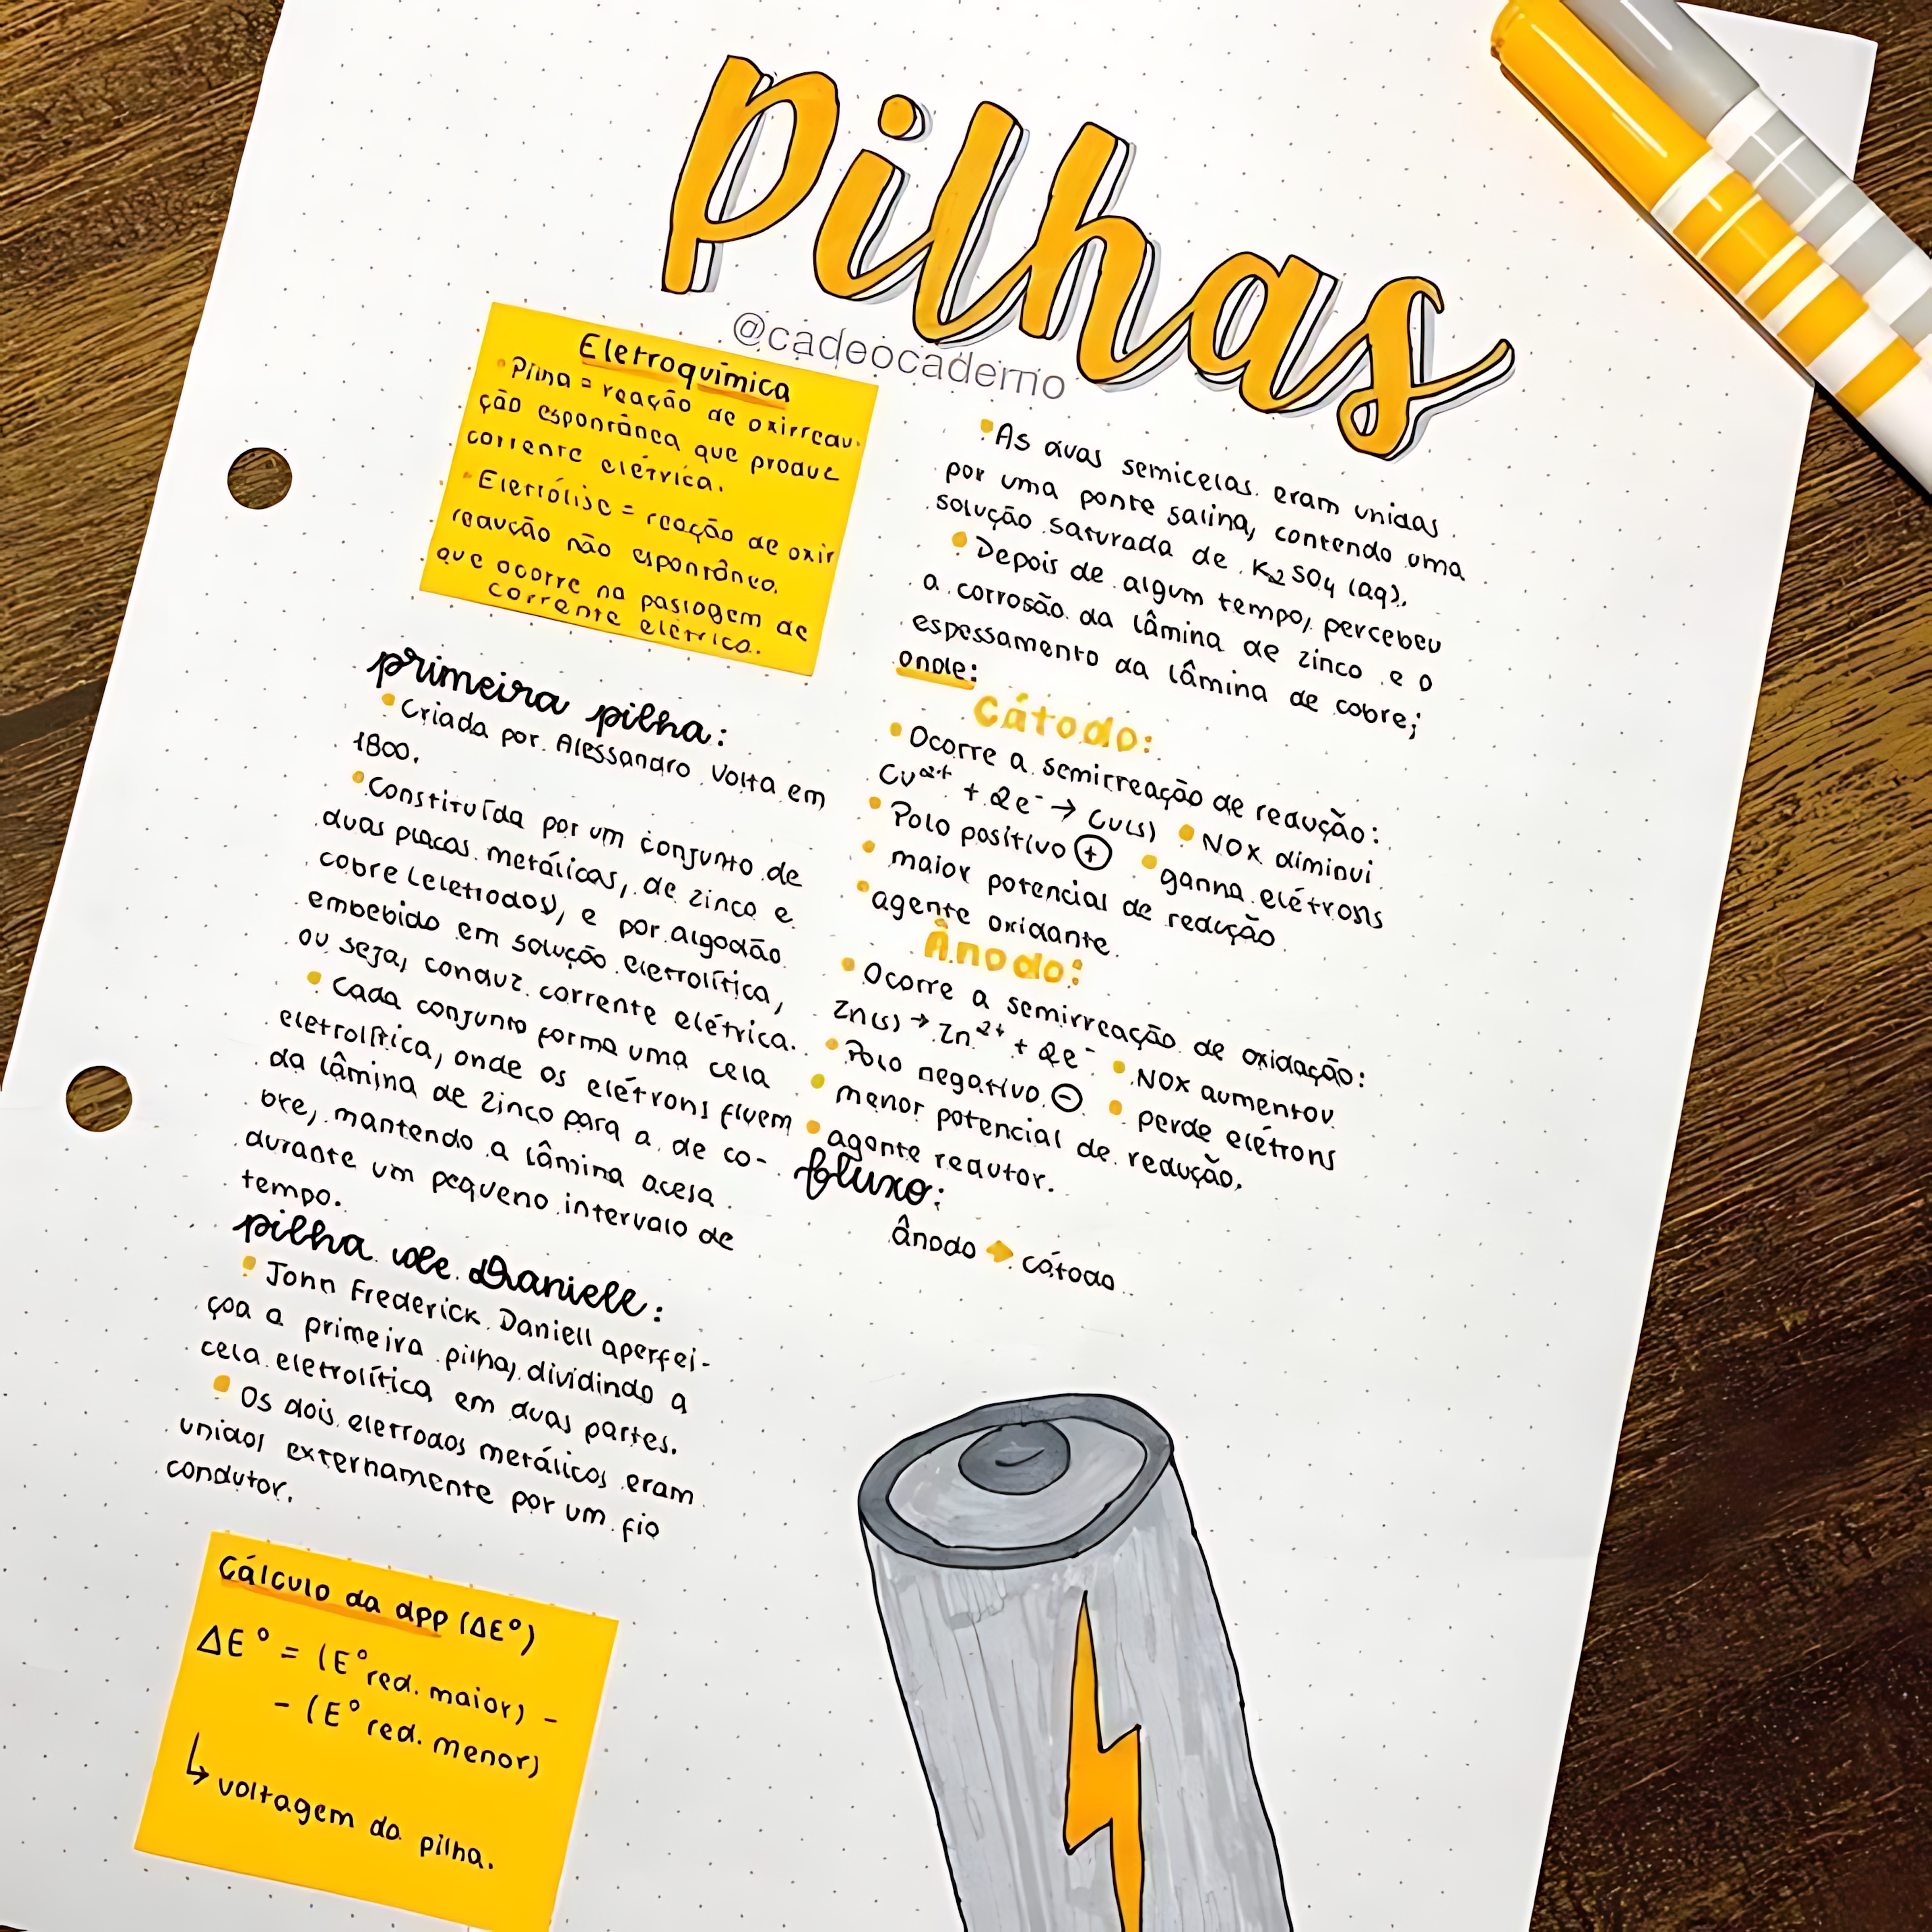 Pilhas
@cadeocaderno
Eletroquímica
• Pilha = reação de oxirredu-
ção espontânea que produz
corrente elétrica.
• Eletrólise = reação de oxir
redução não espontânea.
que ocorre na passagem de
corrente elétrica.
primeira pilha:
• Criada por Alessandro Volta em
1800.
• Constituída por um conjunto de
duas placas metálicas, de zinco e
cobre (eletrodos), e por algodão
embebido em solução eletrolítica,
ou seja, conduz corrente elétrica.
• Cada conjunto forma uma cela
eletrolítica, onde os elétrons fluem
da lâmina de zinco para a de co-
bre, mantendo a lâmina acesa
durante um pequeno intervalo de
tempo.
pilha de Daniell:
• John Frederick Daniell aperfei-
çoa a primeira pilha, dividindo a
cela eletrolítica em duas partes.
• Os dois eletrodos metálicos eram
unidos externamente por um fio
condutor.
Cálculo da dpp (ΔE°)
ΔE° = (E° red. maior) -
- (E° red. menor)
↳ voltagem da pilha.
• As duas semicelas eram unidas
por uma ponte salina, contendo uma
solução saturada de K2SO4 (aq).
• Depois de algum tempo, percebeu
a corrosão da lâmina de zinco e o
espessamento da lâmina de cobre;
onde:
Cátodo:
• Ocorre a semirreação de redução:
Cu²⁺ + 2e⁻ → Cu(s) • NOX diminui
• Polo positivo ⊕ • ganha elétrons
• maior potencial de redução
• agente oxidante.
Ânodo:
• Ocorre a semirreação de oxidação:
Zn(s) → Zn²⁺ + 2e⁻ • NOX aumentou
• Polo negativo ⊖ • perde elétrons
• menor potencial de redução.
• agente redutor.
fluxo:
ânodo → cátodo